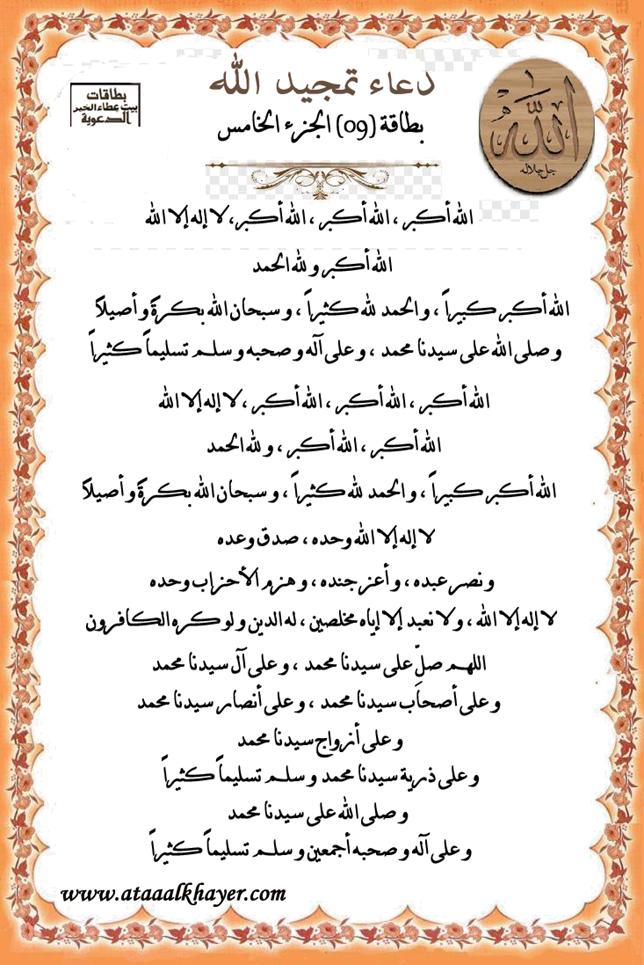 دعاء تمجيد الله
بطاقة (09) الجزء الخامس
بطاقات
بيت عطاء الخير
الدعوية
الله
جل جلاله
الله أكبر ، الله أكبر ، الله أكبر، لا إله إلا الله
الله أكبر ولله الحمد
الله أكبر كبيراً ، والحمد لله كثيراً ، وسبحان الله بكرةً وأصيلاً
وصلى الله على سيدنا محمد ، وعلى آله وصحبه وسلم تسليماً كثيراً
الله أكبر ، الله أكبر ، الله أكبر ، لا إله إلا الله
الله أكبر ، الله أكبر ، ولله الحمد
الله أكبر كبيراً ، والحمد لله كثيراً ، وسبحان الله بكرةً وأصيلاً
لا إله إلا الله وحده ، صدق وعده
ونصر عبده ، وأعز جنده ، وهزم الأحزاب وحده
لا إله إلا الله ، ولا نعبد إلا إياه مخلصين ، له الدين ولو كره الكافرون
اللهم صلِّ على سيدنا محمد ، وعلى آل سيدنا محمد
وعلى أصحاب سيدنا محمد ، وعلى أنصار سيدنا محمد
وعلى أزواج سيدنا محمد
وعلى ذرية سيدنا محمد وسلم تسليماً كثيراً
وصلى الله على سيدنا محمد
وعلى آله وصحبه أجمعين وسلم تسليماً كثيراً
www.ataaalkhayer.com